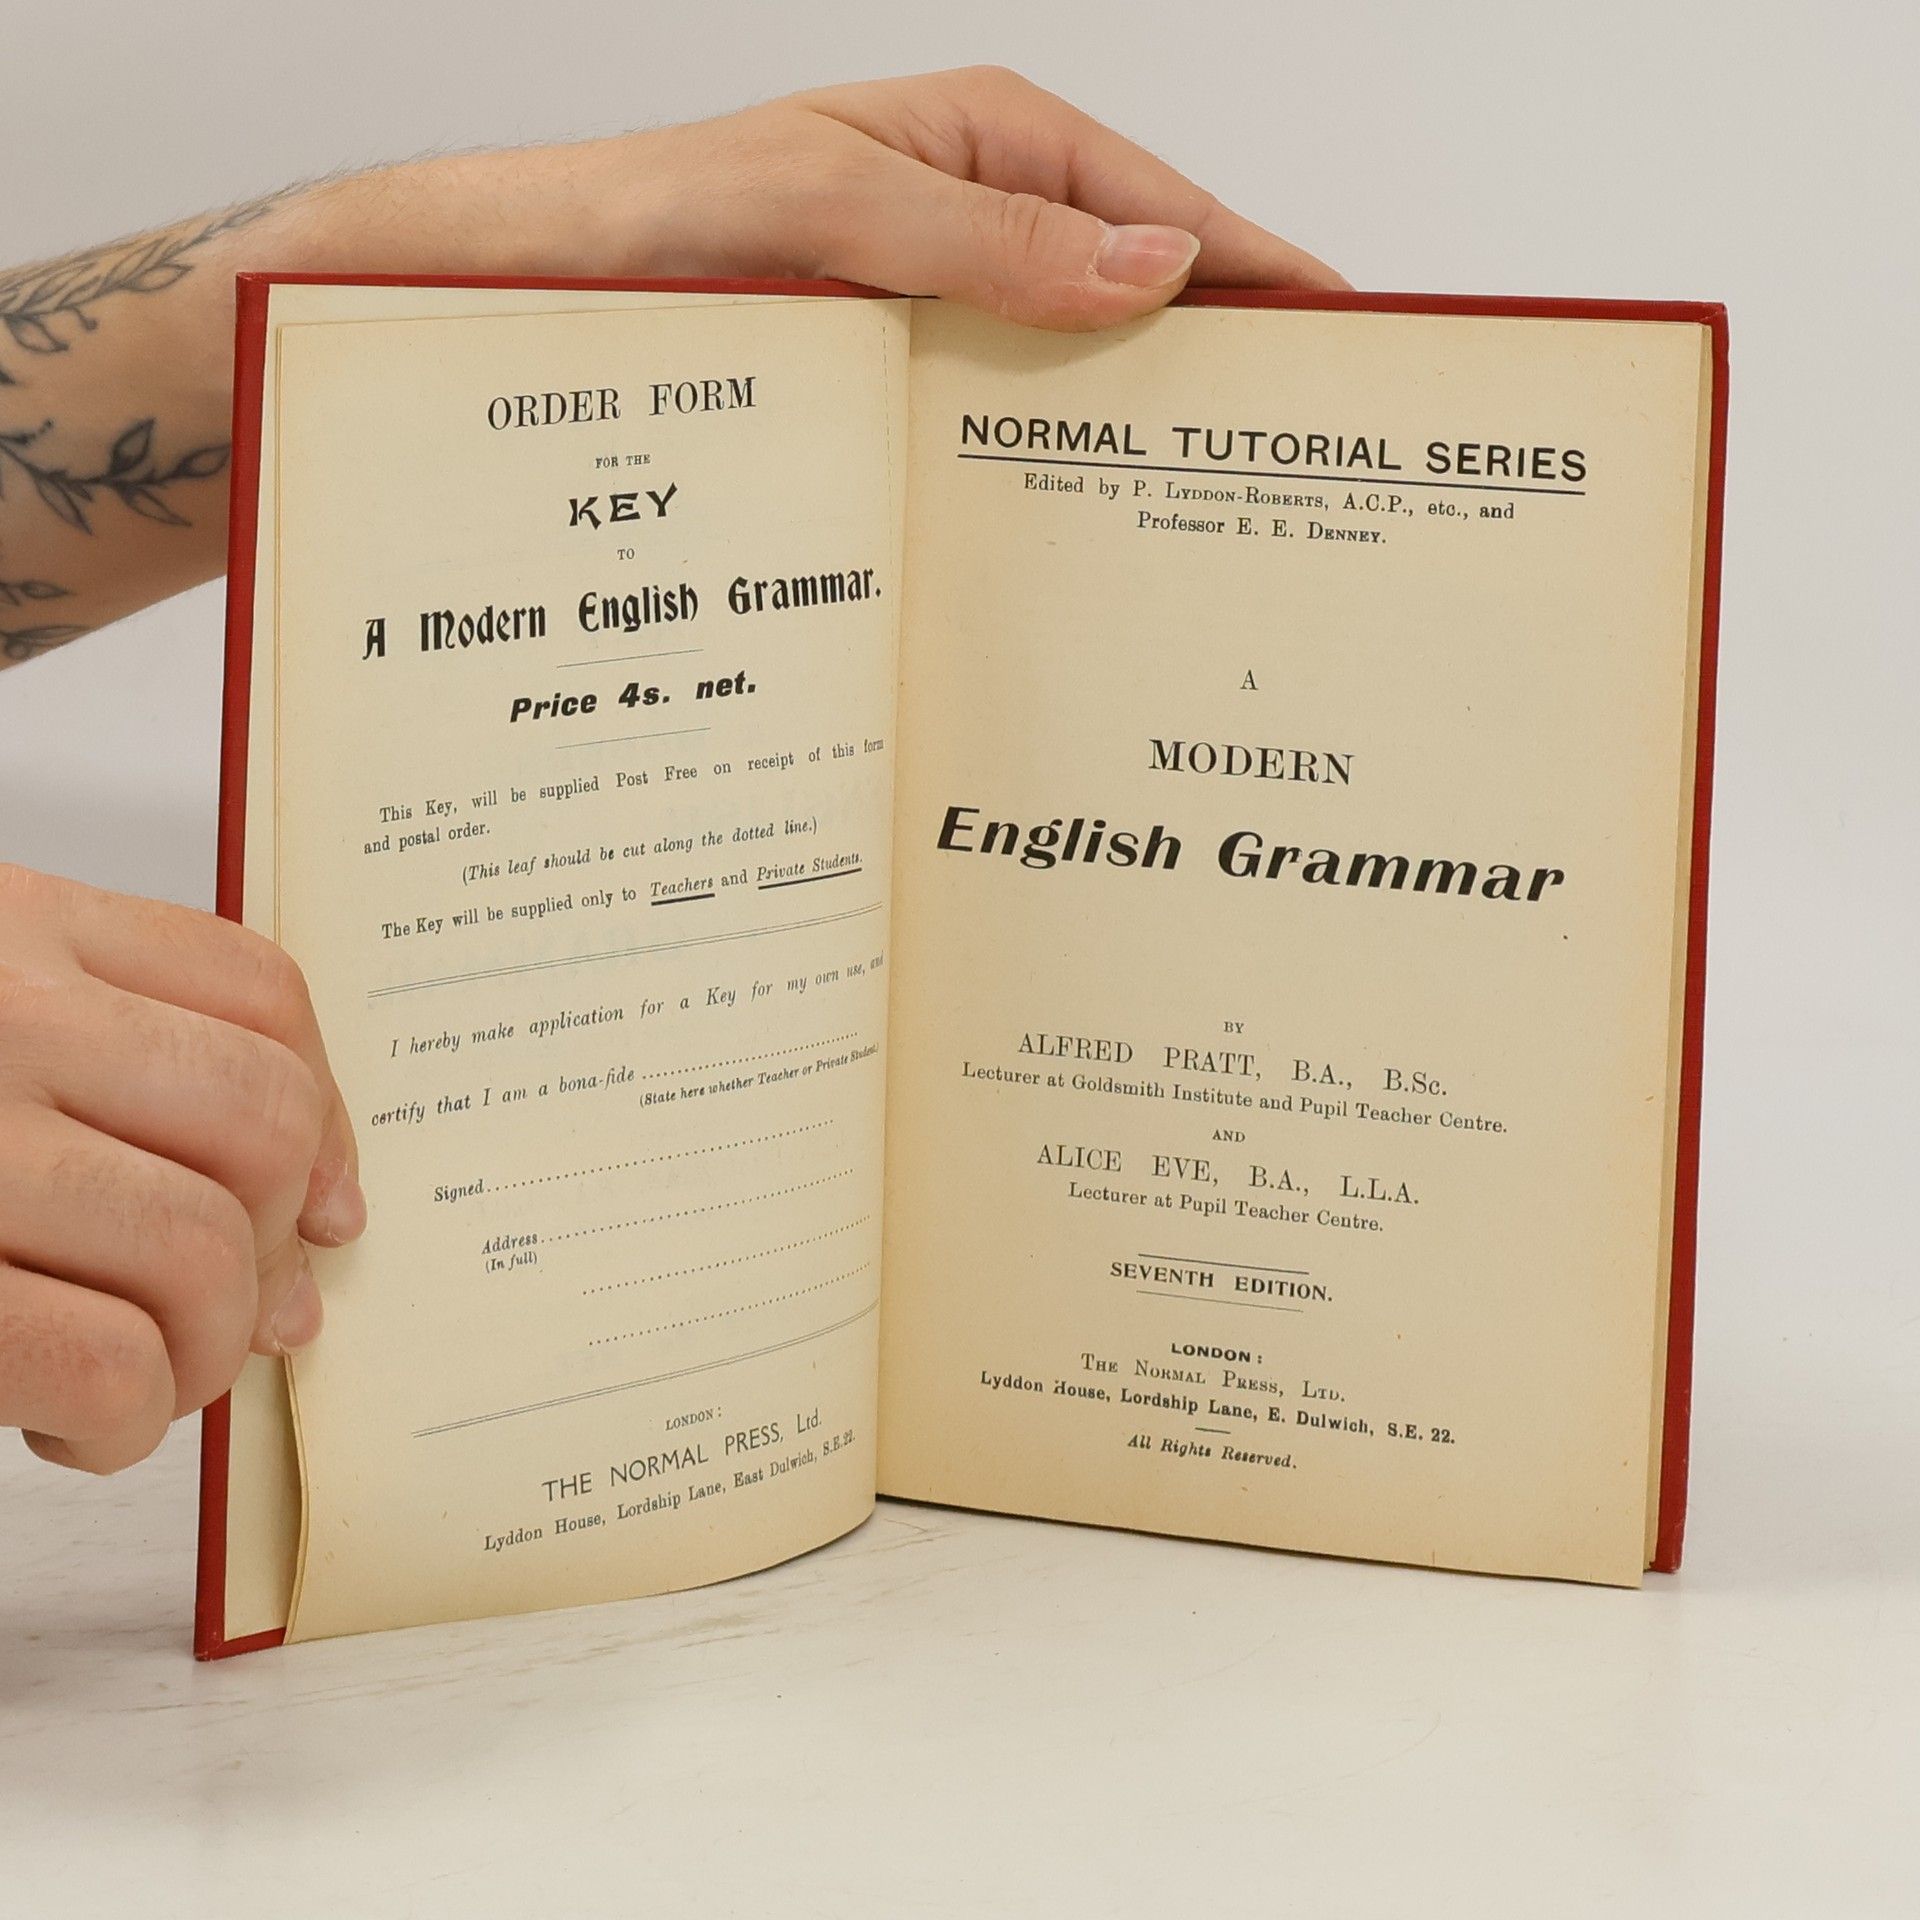 ORDER FORM
FOR THE
KEY
TO
A Modern English Grammar.
Price 4s. net.
This Key, will be supplied Post Free on receipt of this form
and postal order.
(This leaf should be cut along the dotted line.)
The Key will be supplied only to Teachers and Private Students.
I hereby make application for a Key for my own use, and
certify that I am a bona-fide ..............................
(State here whether Teacher or Private Student.)
Signed..................................................
Address..............................................
(In full)
..........................................
..........................................
LONDON:
THE NORMAL PRESS, Ltd.
Lyddon House, Lordship Lane, East Dulwich, S.E.22.
NORMAL TUTORIAL SERIES
Edited by P. LYDDON-ROBERTS, A.C.P., etc., and
Professor E. E. DENNEY.
A
MODERN
English Grammar
BY
ALFRED PRATT, B.A., B.Sc.
Lecturer at Goldsmith Institute and Pupil Teacher Centre.
AND
ALICE EVE, B.A., L.L.A.
Lecturer at Pupil Teacher Centre.
SEVENTH EDITION.
LONDON:
THE NORMAL PRESS, LTD.
Lyddon House, Lordship Lane, E. Dulwich, S.E. 22.
All Rights Reserved.